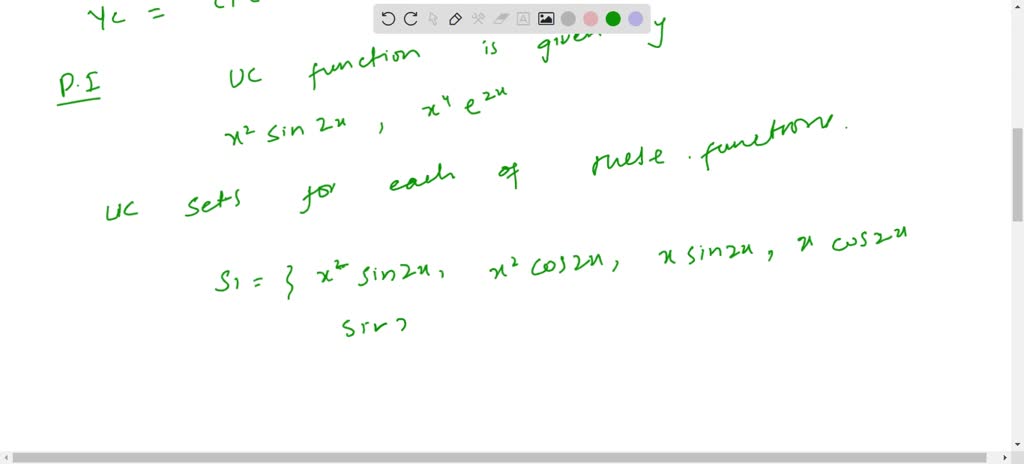 Yc =
P.I UC function is given y
x² sin 2x, x⁴ e²ˣ
UC sets for each of these functions.
S₁ = { x² sin2x, x² cos2x, x sin2x, x cos2x
sin 2